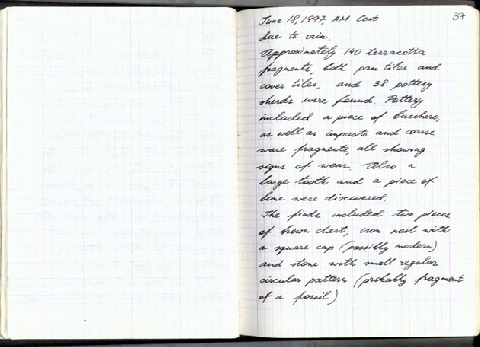 37
June 18, 1997, AM Lost
due to rain.
Approximately 140 terracotta
fragments, both pan tiles and
cover tiles, and 38 pottery
sherds were found. Pottery
included a piece of bucchero,
as well as impasto and coarse
ware fragments, all showing
signs of wear. Also a
large tooth and a piece of
bone were discovered.
The finds included two pieces
of brown chert, iron nail with
a square cap (possibly modern)
and stone with small regular
circular pattern (probably fragment
of a fossil)